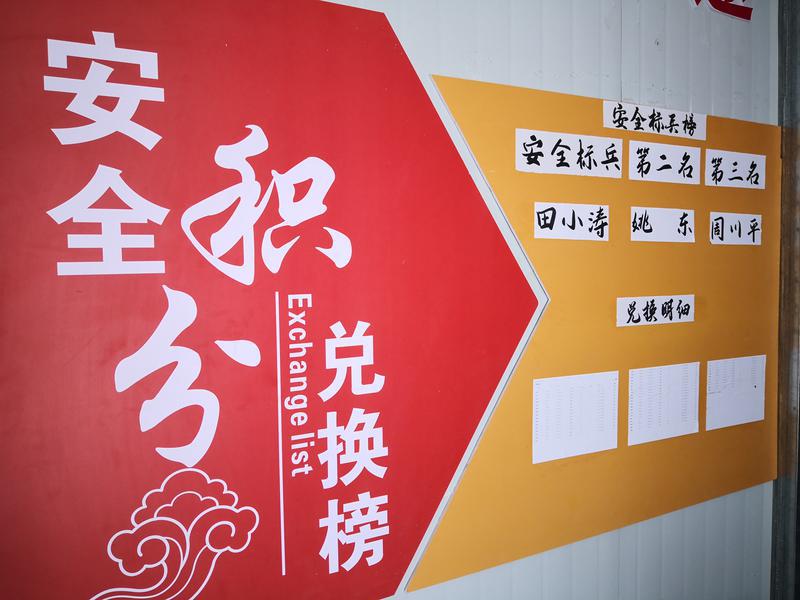 安全
积分
Exchange list
兑换榜
安全标兵榜
安全标兵 第二名 第三名
田小涛 姚东 周川平
兑换明细